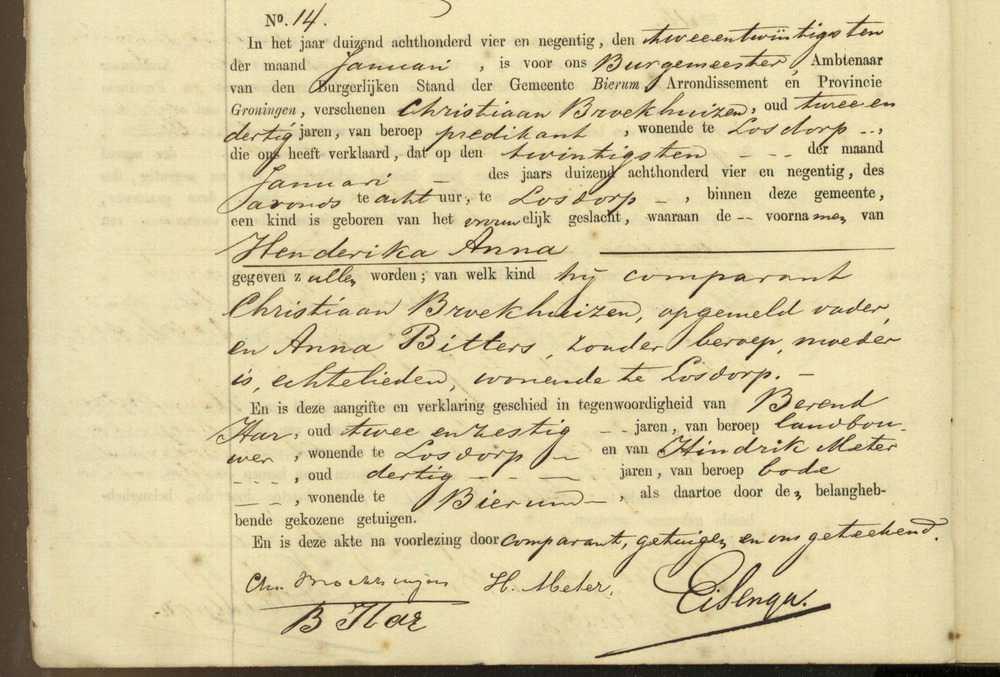 No. 14.
In het jaar duizend achthonderd vier en negentig, den tweeentwintigsten
der maand Januari , is voor ons Burgemeester, Ambtenaar
van den Burgerlijken Stand der Gemeente Bierum, Arrondissement en Provincie
Groningen, verschenen Christiaan Broekhuizen, oud twee en
dertig jaren, van beroep predikant , wonende te Losdorp -,
die ons heeft verklaard, dat op den twintigsten - - - der maand
Januari - des jaars duizend achthonderd vier en negentig, des
avonds te acht uur, te Losdorp -, binnen deze gemeente,
een kind is geboren van het vrouwelijk geslacht, waaraan de -- voornamen van
Henderika Anna
gegeven zullen worden; van welk kind hij comparant
Christiaan Broekhuizen, opgemeld vader,
en Anna Bitters, zonder beroep, moeder
is, echtelieden, wonende te Losdorp. -
En is deze aangifte en verklaring geschied in tegenwoordigheid van Berend
Har, oud twee en zestig - - jaren, van beroep landbou-
wer , wonende te Losdorp - en van Hindrik Meter
- - - , oud dertig - - - - jaren, van beroep bode
- - - , wonende te Bierum -, als daartoe door den belangheb-
bende gekozene getuigen.
En is deze akte na voorlezing door comparant, getuigen en ons geteekend.
Chr. Broekhuizen H. Meter.
B Har